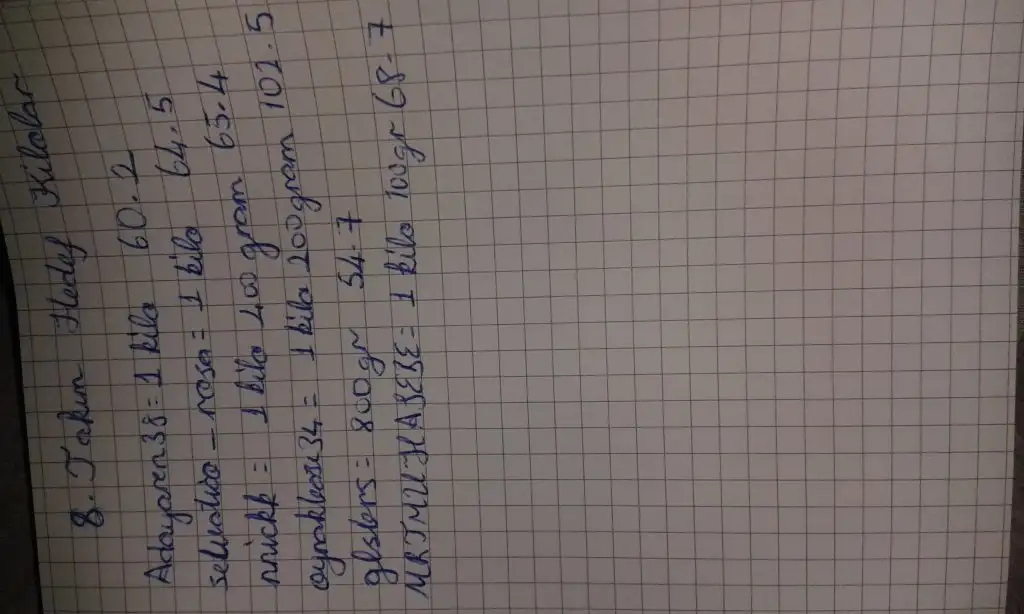 8. Takım Hedef Kilolar
Adayaren38 = 1 kilo 60.2
selvatico - rosa = 1 kilo 64.5
nnickk = 1 kilo 400 gram 65.4
oynakkari34 = 1 kilo 200 gram 102.5
gbslers = 800gr 54.7
MRTMUHASEBE = 1 kilo 100gr 68.7